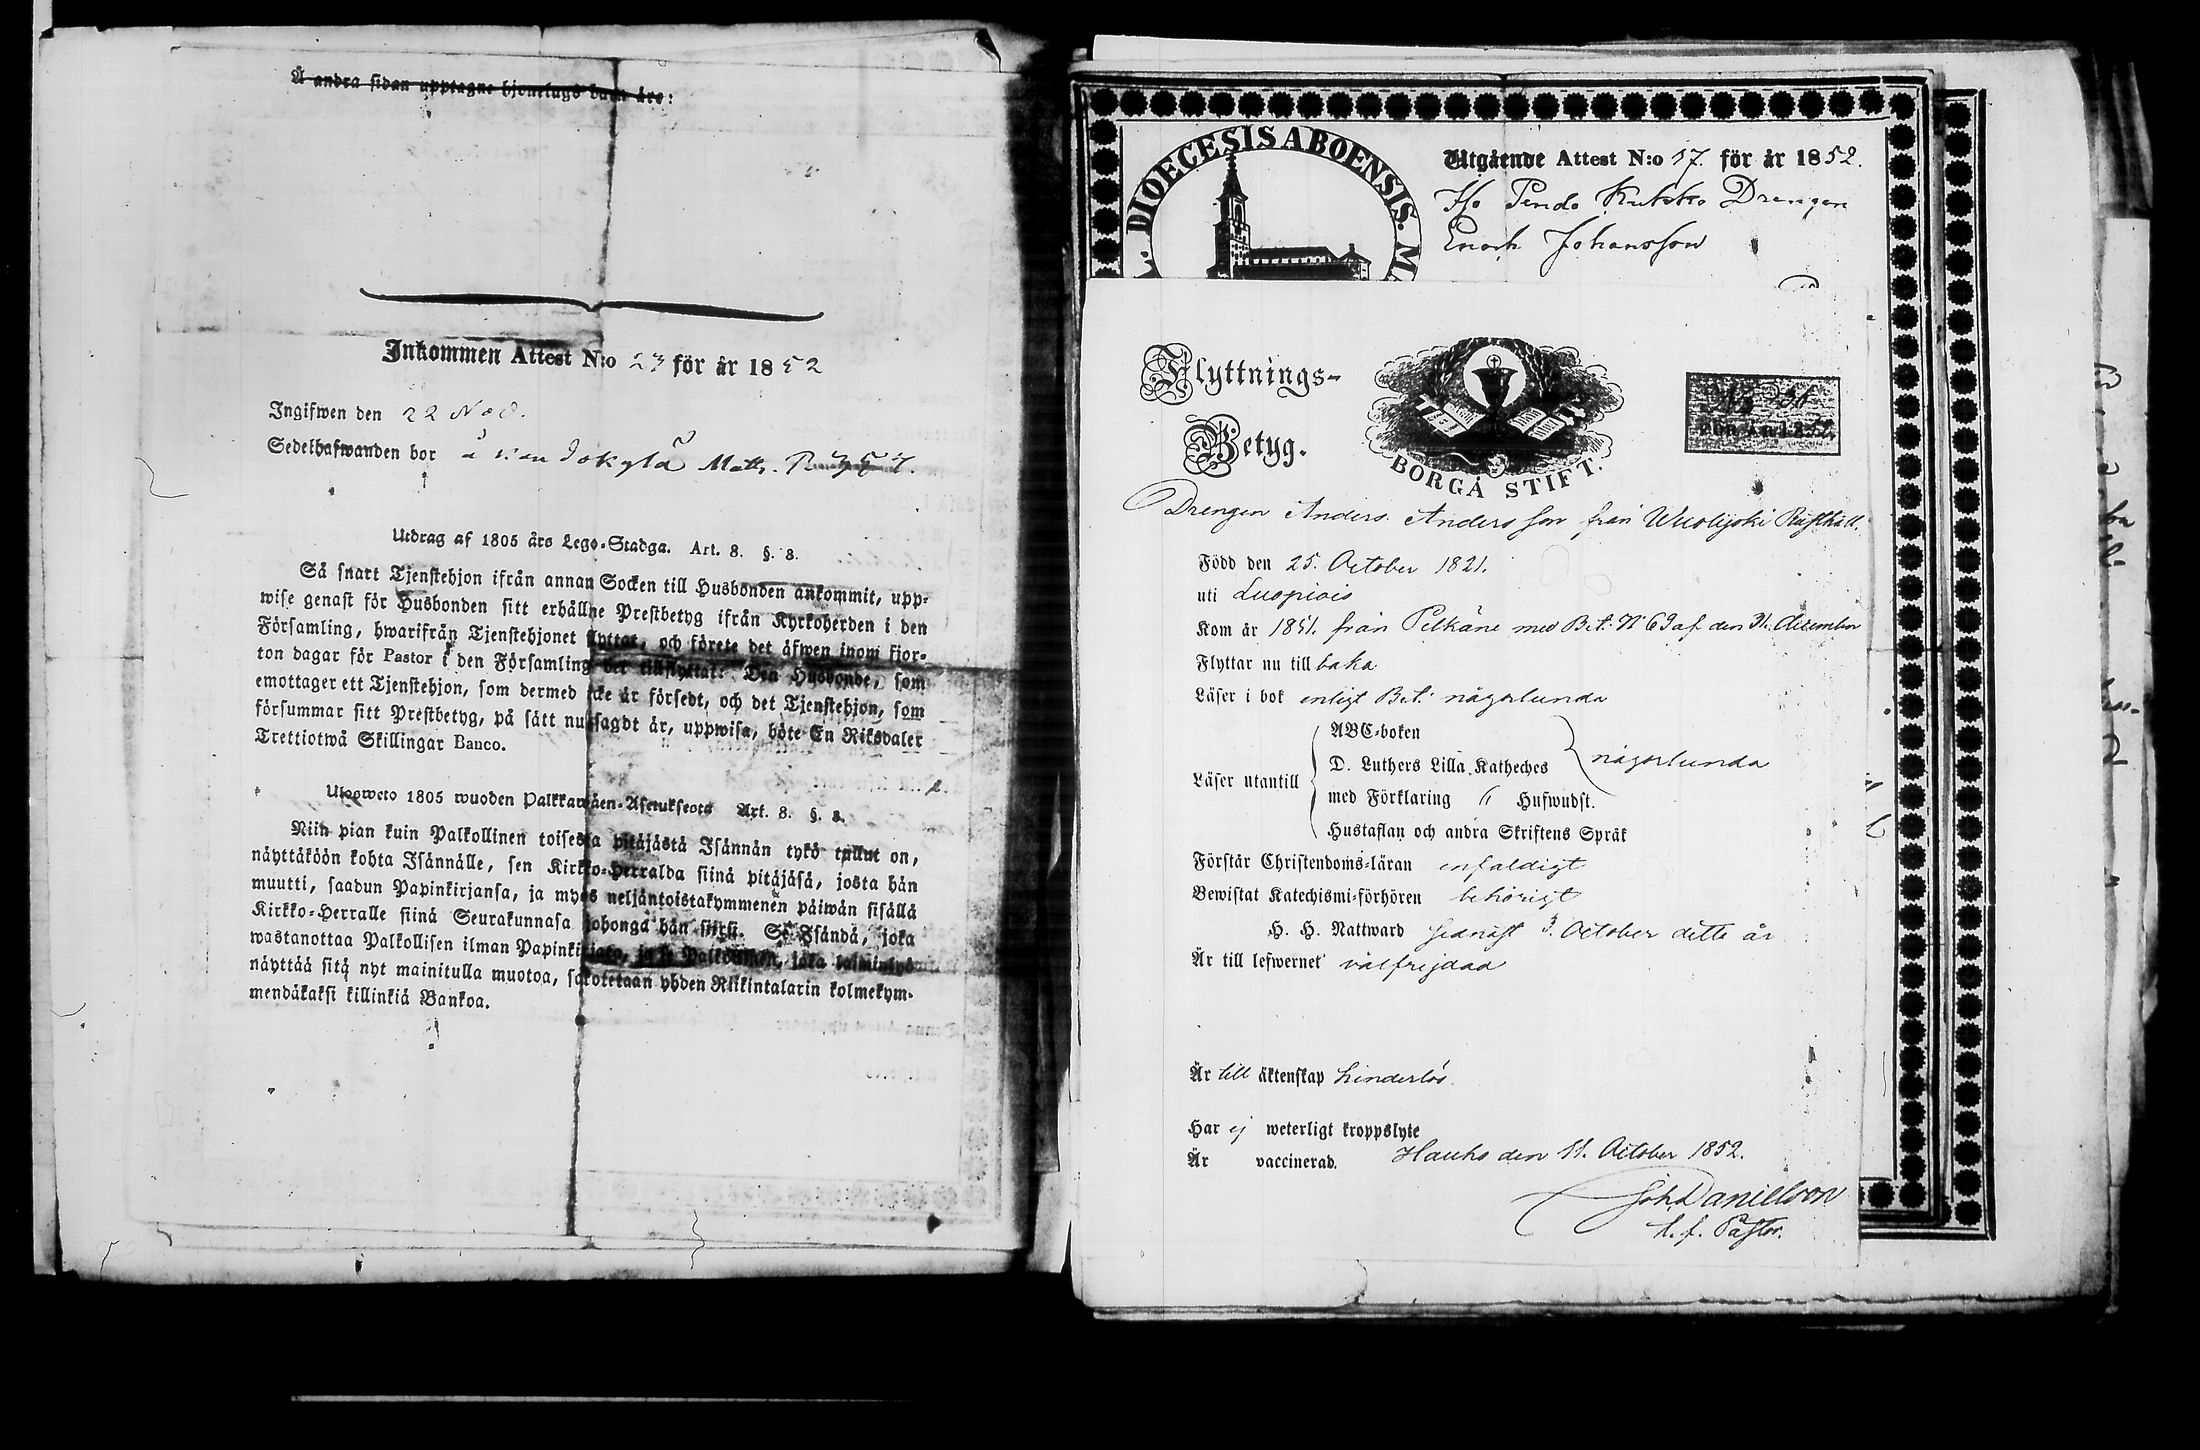 Å andra sidan upptagne hjonelags barn äro:
Inkommen Attest N:o 23 för år 1852
Ingifwen den 22 Nov.
Sedelhafwanden bor å Jokyla Matts.
Utdrag af 1805 års Lego-Stadga. Art. 8. §. 8.
Så snart Tjenstehjon ifrån annan Socken till Husbonden ankommit, upp-
wise genast för Husbonden sitt erhållne Prestbetyg ifrån Kyrkoherden i den
Församling, hwarifrån Tjenstehjonet flyttat, och förete det äfwen inom fjor-
ton dagar för Pastor i den Församling det tillflyttat. Den Husbonde, som
emottager ett Tjenstehjon, som dermed icke är försedt, och det Tjenstehjon, som
försummar sitt Prestbetyg, på sätt nu sagdt är, uppwisa, böte En Riksdaler
Trettiotwå Skillingar Banco.
Ulosweto 1805 wuoden Palkkawäen-Asetuksesta Art. 8. §. 8.
Niin pian kuin Palkollinen toisesta pitäjästä Isännän tykö tullut on,
näyttäköön kohta Isännälle, sen Kirkko-Herralda siinä pitäjäsä, josta hän
muutti, saadun Papinkirjansa, ja myös neljäntoistakymmenen päiwän sisällä
Kirkko-Herralle siinä Seurakunnasa johonga hän siirsi. Se Isändä, joka
wastanottaa Palkollisen ilman Papinkirjata, ja se Palkollinen, joka
näyttää sitä nyt mainitulla muotoa, sakotetaan yhden Riikintalarin kolmekym-
mendäkaksi killinkiä Bankoa.
DIOECESIS ABOENSIS. MA
Utgående Attest N:o 17. för år 1852.
Drengen
Enoch Johansson
Flyttnings-
Betyg.
BORGÅ STIFT.
Drengen Anders Andersson från Wuolijoki Rusthåll.
Född den 25. October 1821.
uti Luopiois
Kom år 1851. från Pelkäne med Bet. N 63 af den 31. December
Flyttar nu till baka
Läser i bok enligt Bet. någorlunda
ABC-boken
D. Luthers Lilla Katheches någorlunda
Läser utantill
med Förklaring 6 Hufwudst.
Hustaflan och andra Skriftens Språk
Förstår Christendoms-läran enfaldigt
Bewistat Katechismi-förhören behörigt
H. H. Nattward sednast 3. October detta år
Är till lefwernet välfrejdad
Är till äktenskap hinderlös.
Har ej weterligt kroppslyte
Är vaccinerad. Hauho den 11. October 1852.
Joh. Danielsson
t. f. Pastor.